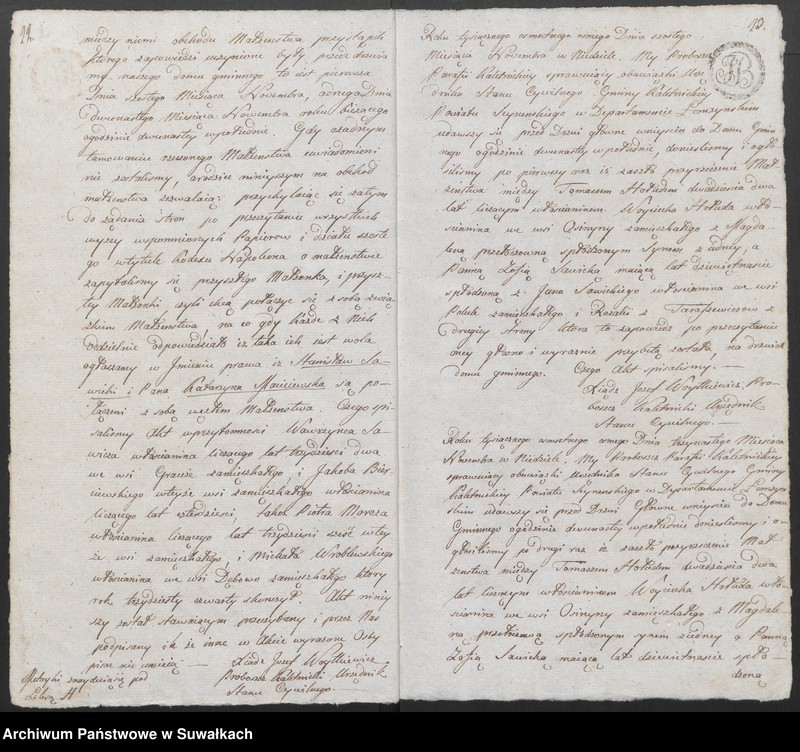 22.
między niemi obchodu Małżeństwa przystąpili
którego zapowiedzi uczynione były przed drzwia
mi naszego domu gminnego to iest pierwsza
Dnia szostego Miesiąca Novembra, a druga Dnia
dwunastego Miesiąca Novembra roku bieżącego
ogodzinie dwunastey wpołudnie. Gdy o żadnym
tamowaniu rzeczonego Małżeństwa uwiadomieni
nie zostalismy, a rodzice ninieyszym na obchod
małżeństwa zezwalaią: przychylaiąc się zatym
do żądania stron po przeczytaniu wszystkich
wyzey wpomnionych Papierow i działu szoste
go wtytule kodexu Napoleona o małżeństwie
zapytaliśmy się przyszłego Małżonka, i przysz-
łey Małżonki czyli chcą połączyc się z sobą zwią
zkiem Małżeństwa, na co gdy każde z Nich
oddzielnie odpowiedziało iż taka ich iest wola
ogłaszamy w Jmieniu prawa iż Stanisław Sa-
wicki i Pana Katarzyna Maciiewska są po-
łączeni z sobą węzłem Małżeństwa. Czego spi-
saliśmy Akt wprzytomności Wawrzyńca Sa-
wicza włościanina liczącego lat trzydzieści dwa
we wsi zamieszkałego i Jakoba
wteyże wsi zamieszkałego włościanina
liczącego lat, takoż Piotra
włościanina liczącego lat trzydzieści sześć wtey
że wsi zamieszkałego, i Michała Wroblewskiego
włościanina we wsi Dębowo zamieszkałego ktory
rok trzydziesty szwarty skonczył. Akt niniey
szy został stawaiącym przeczytany i przez Nas
podpisany ile że inne w Akcie wyrażone Osby
pisac nie umieią.—
Xiądz Jozef Woytkiewicz
Proboszcz Kaletnicki Urzędnik
Stanu Cywilnego.
Metryki znayduiąsię pod
Literą H
23.
Roku tysiącznego osmsetnego osmego Dnia szostego
Miesiąca Novembra w Niedziele. My Proboszcz
Parafii Kaletnickiey sprawuiący obowiązki Urzę
dnika Stanu Cywilnego Gminy Kaletnickiey
Powiatu Seynenskiego w Departamencie Łomzynskim
udawszy się przed Drzwi głowne wniyścia do Domu Gmin
nego ogodzinie dwunastey wpołudnie, donieslismy i ogło
siliśmy po pierwszy raz iż zaszło przyrzeczenie Mał
żeństwa między Tomaszem Hołudem dwadzieścia dwa
lat liczącym włościaninem Woyciecha Hołuda włó-
ścianina we wsi Osinyny zamieszkałego z Magda-
leną spłodzonym Synem zedney, a
Panną Zofią Sawicką maiącą lat dziewietnascie
spłodzoną z Jana Sawickiego włościanina we wsi
zamieszkałego i Rozalii z Tarasiewiczow z
drugiey strony ktora to zapowiedz po przeczytaniu
oney głośno i wyraznie przybitą została na drzwiach
domu gminnego. Czego Akt spisaliśmy.—
Xiądz Jozef Woytkiewicz Pro-
boszcz Kaletnicki Urzędnik
Stanu Cywilnego.—
Roku tysiącznego osmsetnego osmego Dnia trzynastego Miesiąca
Novembra w Niedziele. My Proboszcz Parafii Kaletnickiey
sprawuiący obowiązki Urzędnika Stanu Cywilnego Gminy
Kaletnickiey Powiatu Seynenskiego w Departamencie Łomzyn
skim udawszy się przed Drzwi Głowne wniyścia do Domu
Gminnego ogodzinie dwunastey wpołudnie donieslismy i o-
głosiliśmy po drugi raz iż zaszło przyrzeczenie Mał
żeństwa między Tomaszem Hołudem dwadzieścia dwa
lat liczącym włościaninem Woyciecha Hołuda włó-
ścianina we wsi Osinyny zamieszkałego z Magdale-
ną spłodzonym synem zedney a Panną
Zofią Sawicką maiącą lat dziewietnascie spło-
dzoną
Archiwum Państwowe w Suwałkach